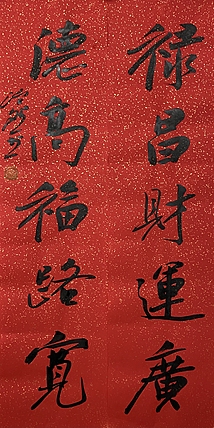 禄昌財運廣
德高福路寬